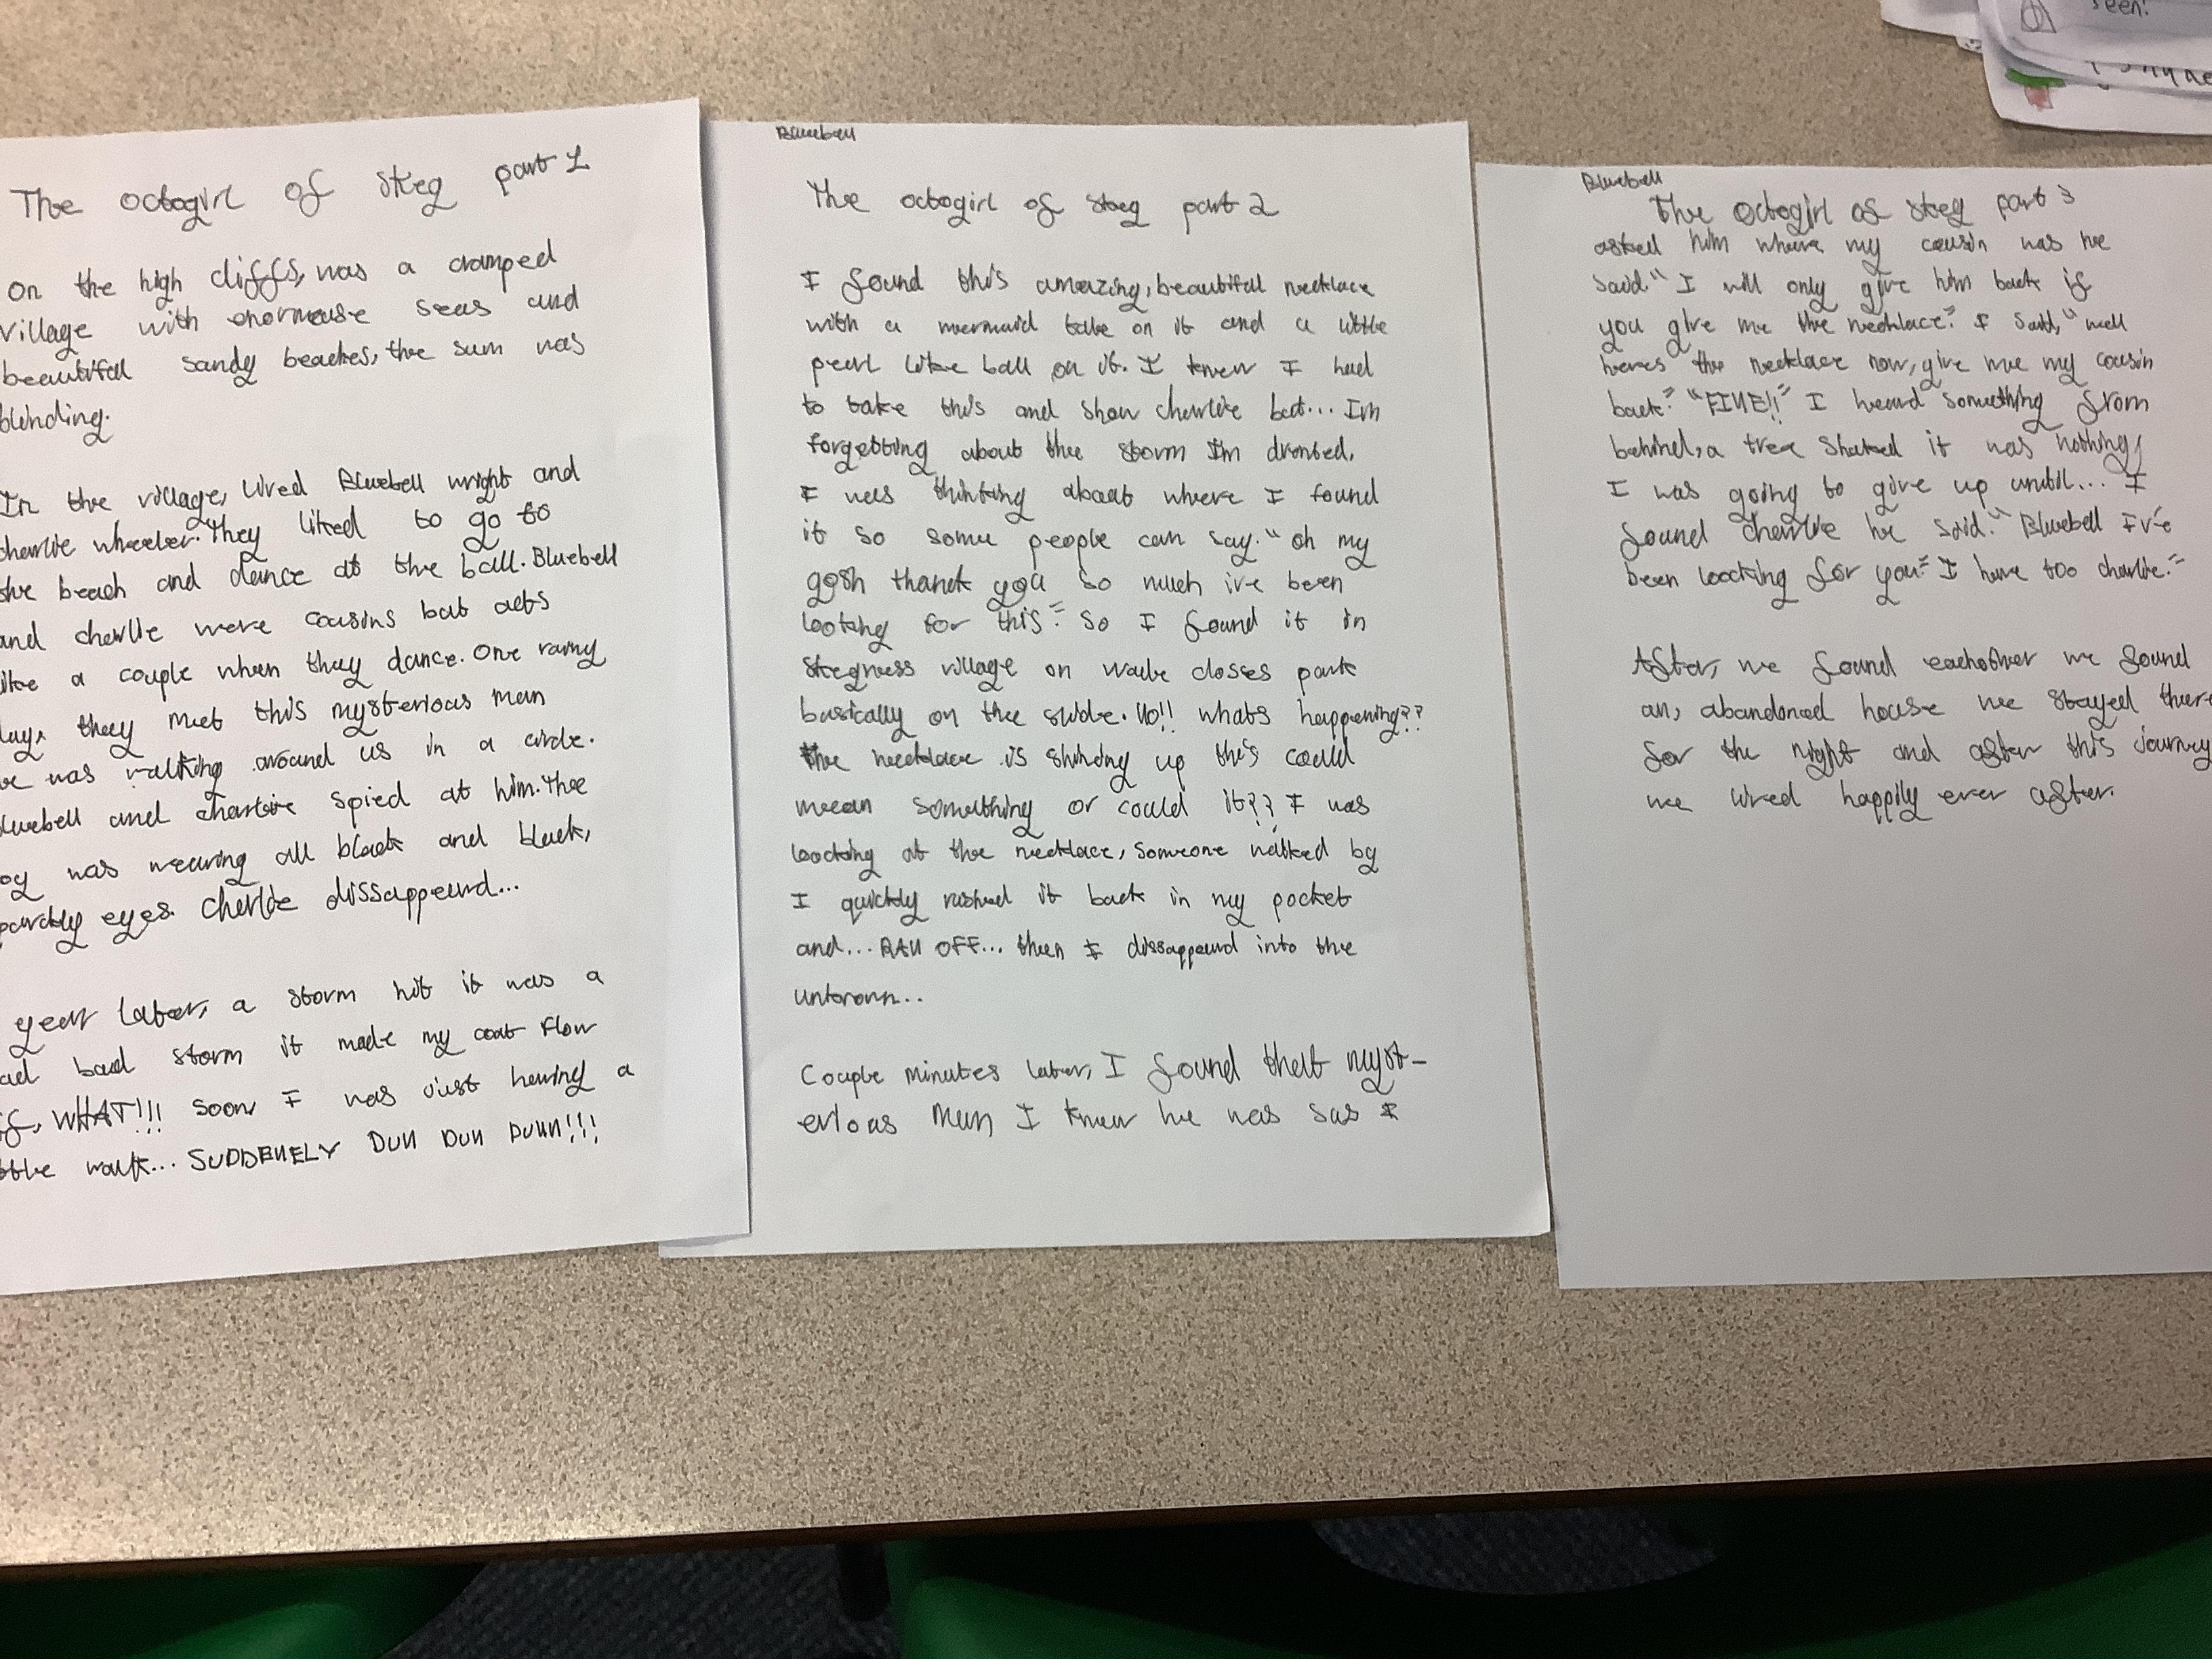 The octogirl of Skeg part 1
on the high cliffs, was a cramped
village with enormouse seas and
beautifull sandy beaches, the sun was
blinding.
In the village, lived Bluebell wright and
charlie wheeler. They liked to go to
the beach and dance at the ball. Bluebell
and charlie were cousins but acts
like a couple when they dance. One rainy
day, they meet this mysterious man
he was walking around us in a circle.
Bluebell and charlie spied at him. The
boy was wearing all black and black,
sparckly eyes. Charlie dissappeard...
year later, a storm hit it was a
bad storm it made my coat flow
WHAT!!! soon I was just having a
little walk... SUDDENELY DUN DUN DUNN!!!
Bluebell
The octogirl of skeg part 2
I found this amazing, beautifull necklace
with a mermaid take on it and a little
pearl like ball on it. I knew I had
to take this and show charlie but... Im
forgetting about the storm I'm drented.
I was thinking about where I found
it so some people can say. "oh my
gosh thanck you so much ive been
looking for this." So I found it in
Skegness village on wade closes park
basically on the slide. UO!! whats happening??
the necklace is shining up this could
mean something or could it?? I was
loocking at the necklace, someone walked by
I quickly rushed it back in my pocket
and... RAN OFF... then I dissappeard into the
unknown..
Couple minutes later, I found that myst-
erioas man I knew he was sus I
Bluebell
The Octogirl of skeg part 3
asked him where my cousin was he
said." I will only give him back if
you give me the necklace." I said," well
heres the necklace now, give me my cousin
back." "FINE!!" I heard something from
behind, a tree shaked it was nothing,
I was going to give up until... I
found charlie he said." Bluebell I've
been loocking for you." I have too charlie."
After, we found eachother we found
an, abandoned house we stayed there
for the night and after this journey
we lived happily ever after.
seen!